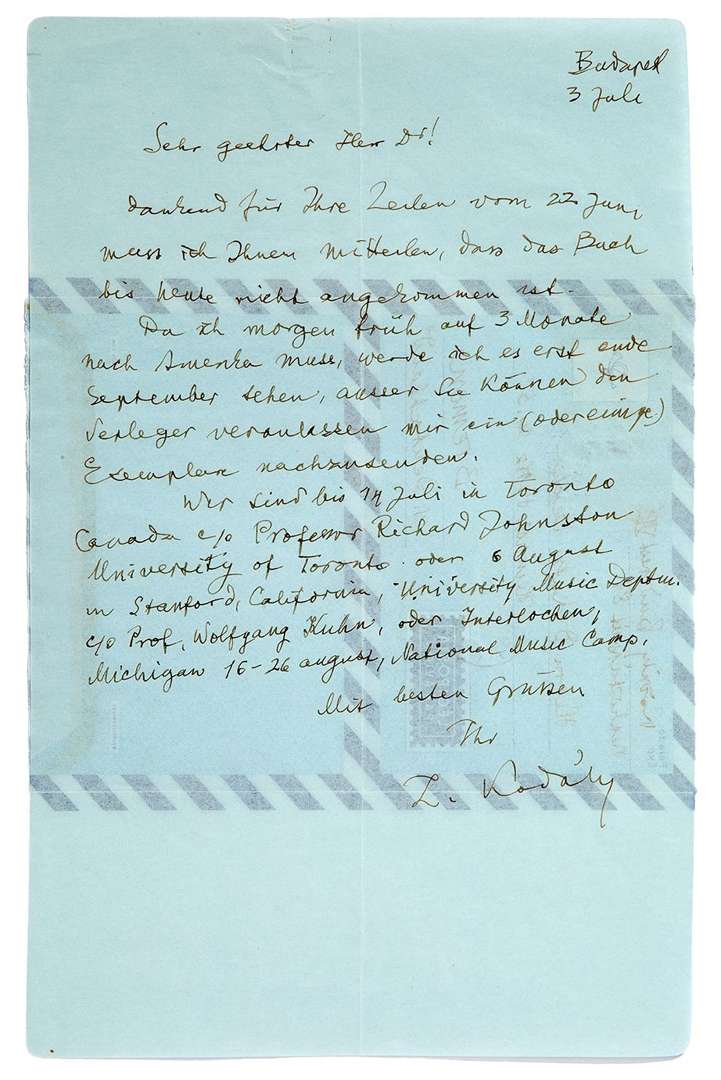 Budapest
3 Juli
Sehr geehrter Herr Dr!
dankend für Ihre Zeilen vom 22 Juni,
muss ich Ihnen mitteilen, dass das Buch
bis heute nicht angekommen ist.
Da ich morgen früh auf 3 Monate
nach Amerika muss, werde ich es erst ende
September sehen, ausser Sie können den
Verleger veranlassen mir ein (oder einige)
Exemplare nachzusenden.
Wir sind bis 14 Juli in Toronto
Canada c/o Professor Richard Johnston
University of Toronto oder 6 August
in Stanford, California, University Music Deptm.
c/o Prof. Wolfgang Kuhn, oder Interlochen,
Michigan 16-26 august, National Music Camp.
Mit besten Grüssen
Ihr
Z. Kodály